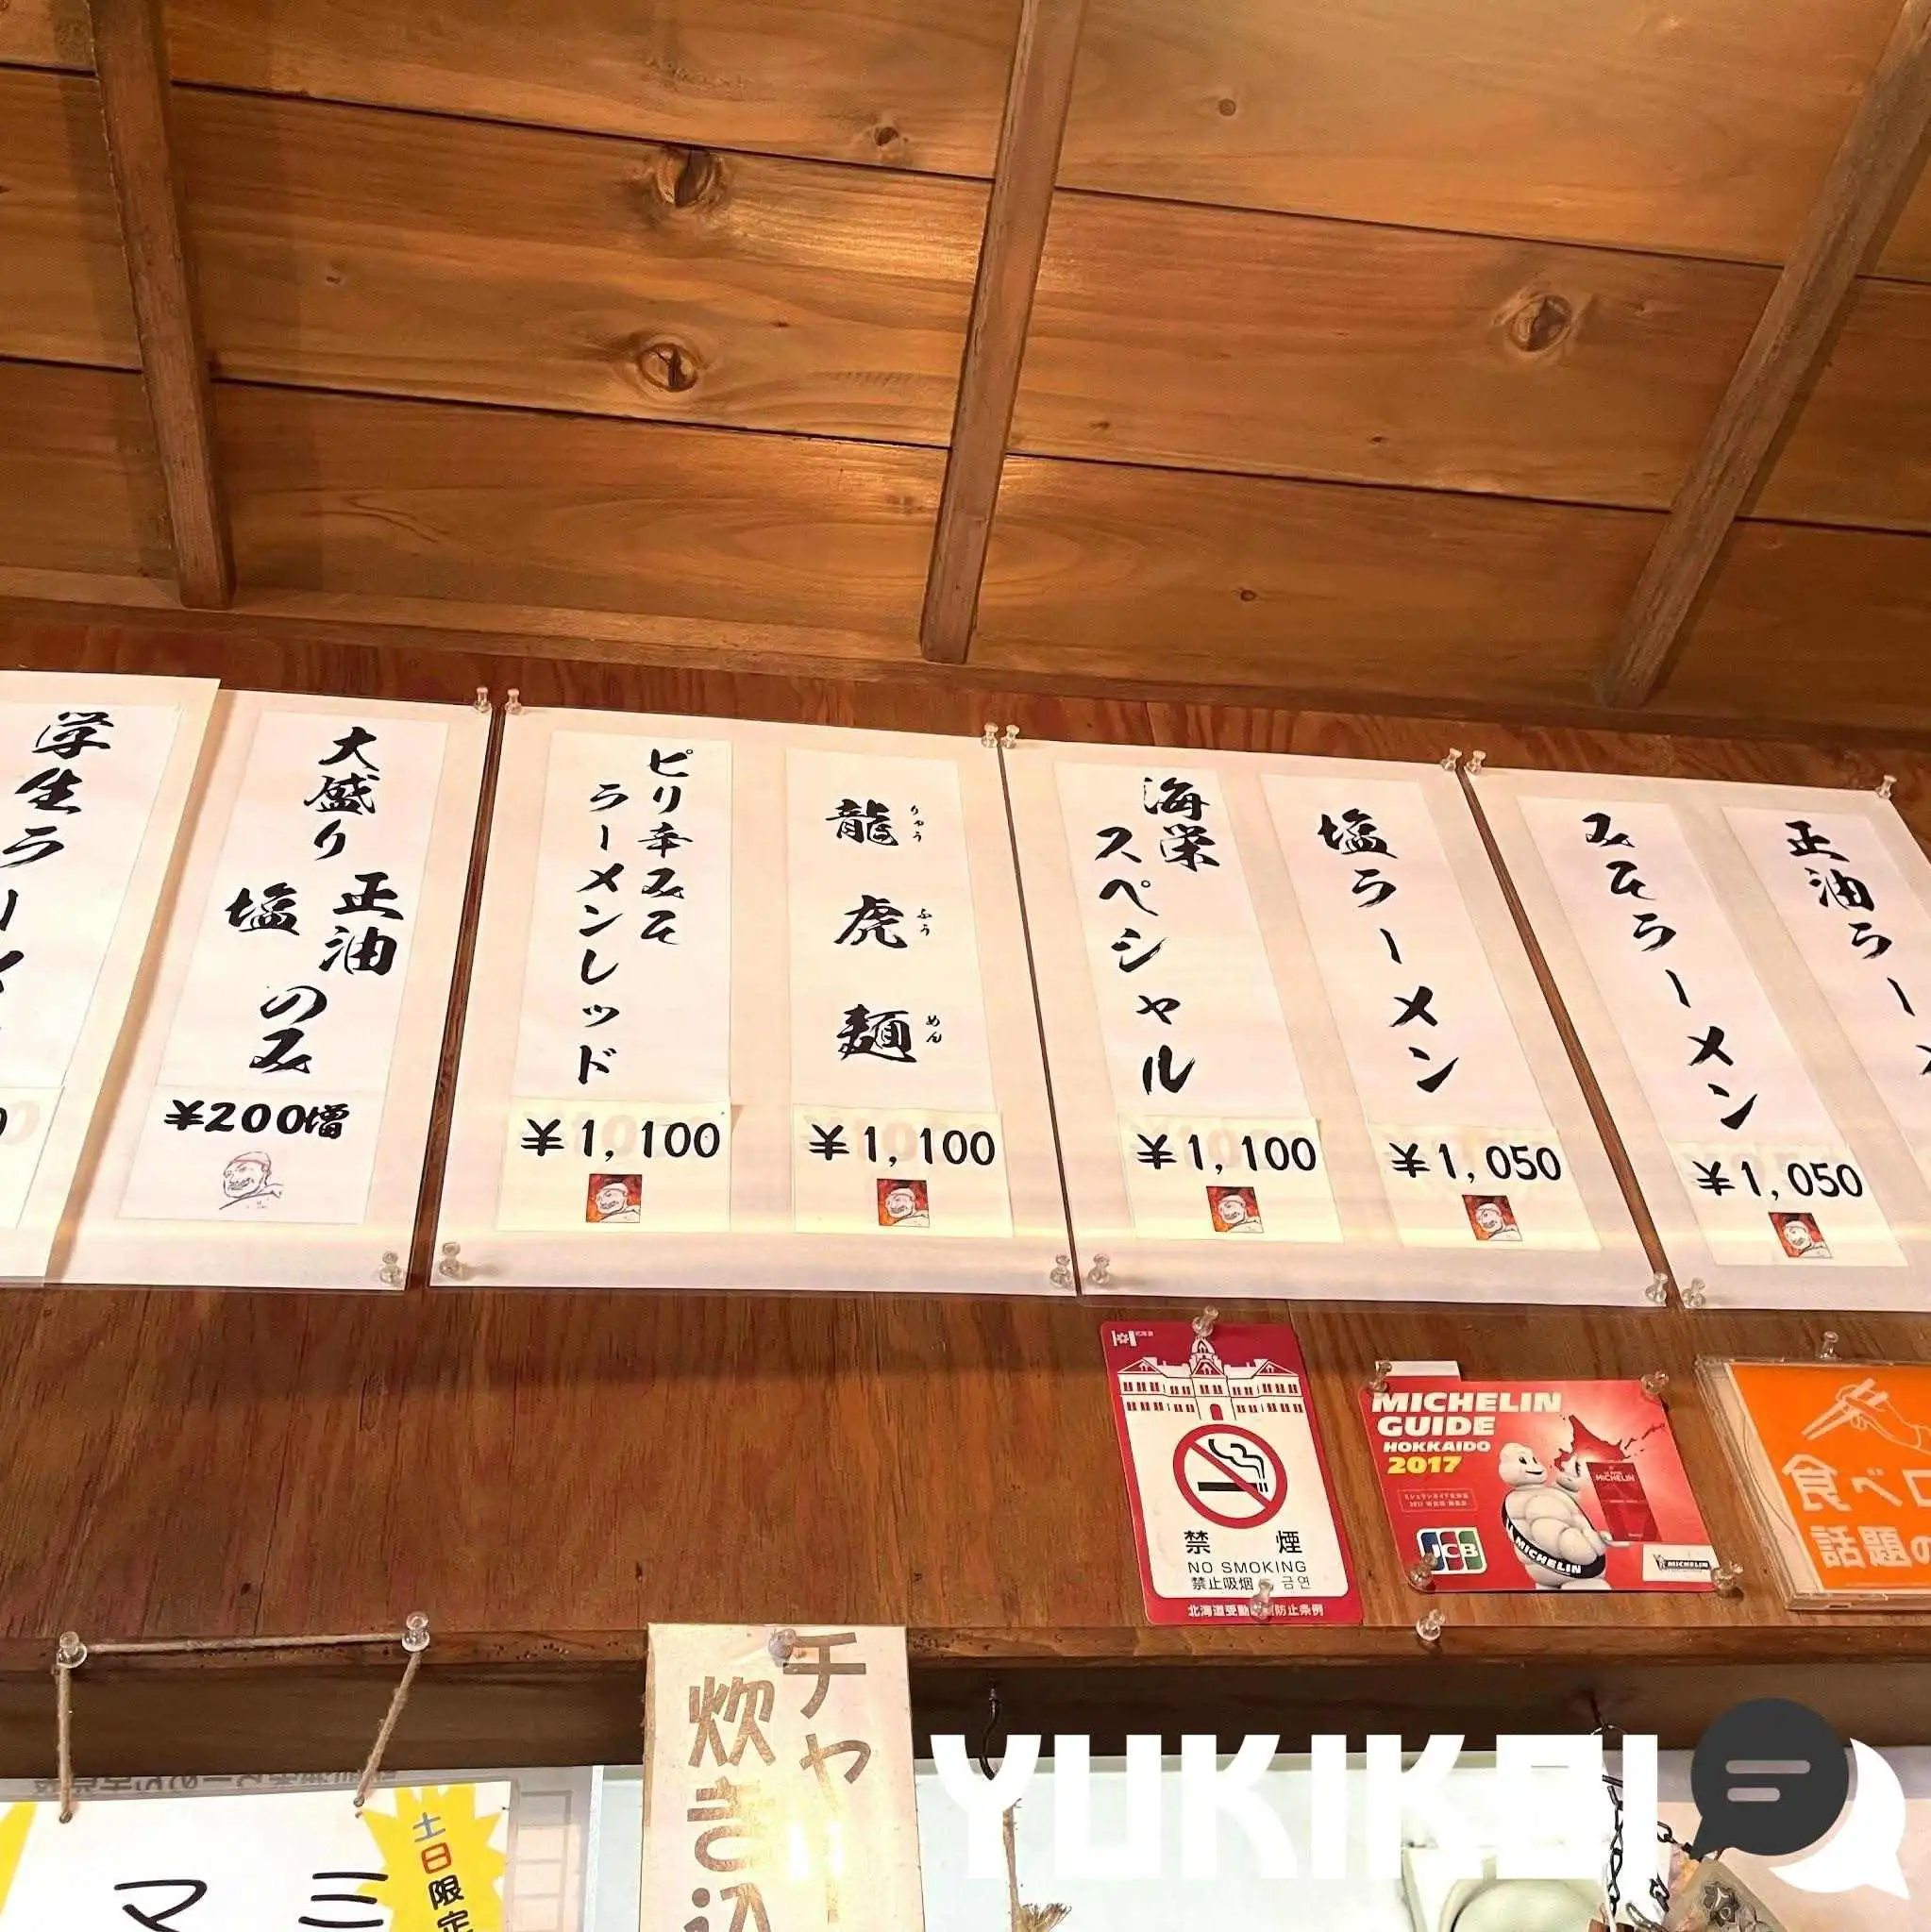 正油ラー
みそラーメン
¥1,050
塩ラーメン
¥1,050
海栄
スペシャル
¥1,100
龍虎麺
りゅう
ふう
めん
¥1,100
ピリ辛みそ
ラーメンレッド
¥1,100
大盛り
正油
塩
のみ
¥200増
学生ラーメン
禁煙
NO SMOKING
禁止吸烟
금연
北海道受動
防止条例
MICHELIN
GUIDE
HOKKAIDO
2017
JCB
MICHELIN
MICHELIN
MICHELIN
食べロ
話題の
チャー
炊き込
土日限定
マミ
YUKIKEI